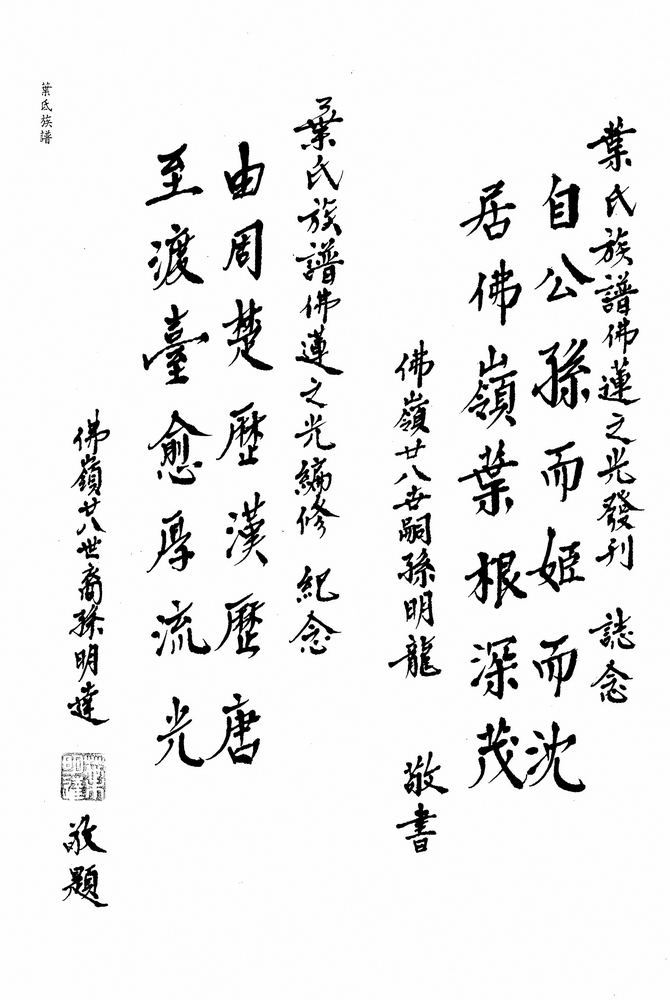 葉氏族譜佛蓮之光發刊 誌念
自公孫而姬而沈
居佛嶺葉根深茂
佛嶺廿八世嗣孫明龍 敬書
葉氏族譜佛蓮之光編修 紀念
由周楚歷漢歷唐
至渡臺愈厚流光
佛嶺廿八世裔孫明達 敬題
葉氏族譜